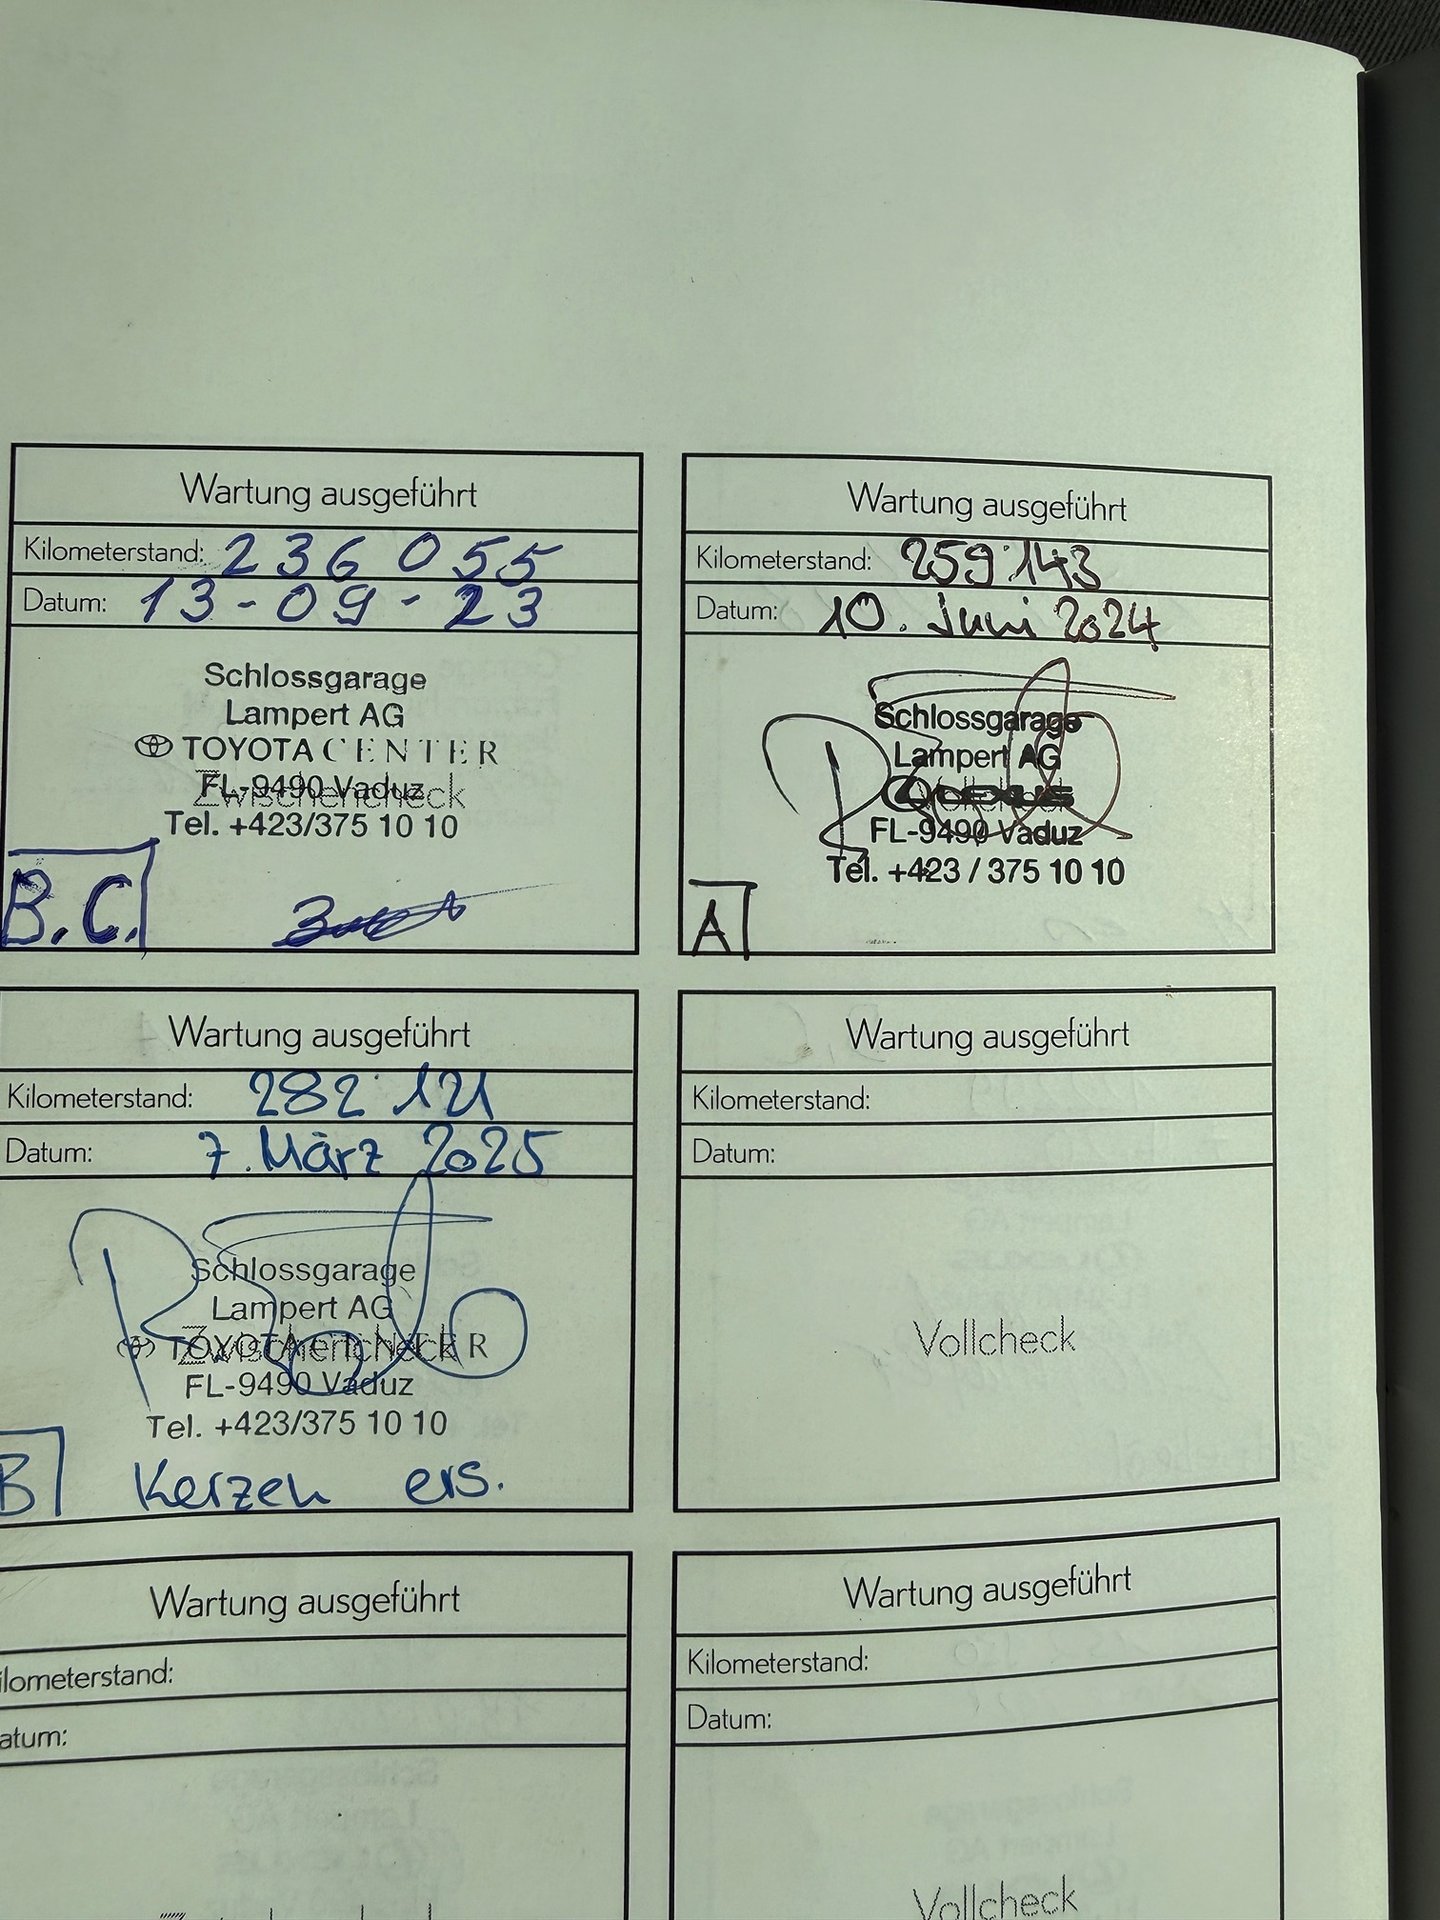 Wartung ausgeführt
Kilometerstand: 236 055
Datum: 13-09-23
Schlossgarage
Lampert AG
TOYOTA CENTER
FL-9490 Vaduz
Zwischencheck
Tel. +423/375 10 10
B.C.
Wartung ausgeführt
Kilometerstand: 259'143
Datum: 10. Juni 2024
Schlossgarage
Lampert AG
LEXUS
FL-9490 Vaduz
Tel. +423 / 375 10 10
A
Wartung ausgeführt
Kilometerstand: 282'121
Datum: 7. März 2025
Schlossgarage
Lampert AG
TOYOTA CENTER
Zwischencheck
FL-9490 Vaduz
Tel. +423/375 10 10
B Kerzen ers.
Wartung ausgeführt
Kilometerstand:
Datum:
Vollcheck
Wartung ausgeführt
ilometerstand:
atum:
Wartung ausgeführt
Kilometerstand:
Datum:
Vollcheck